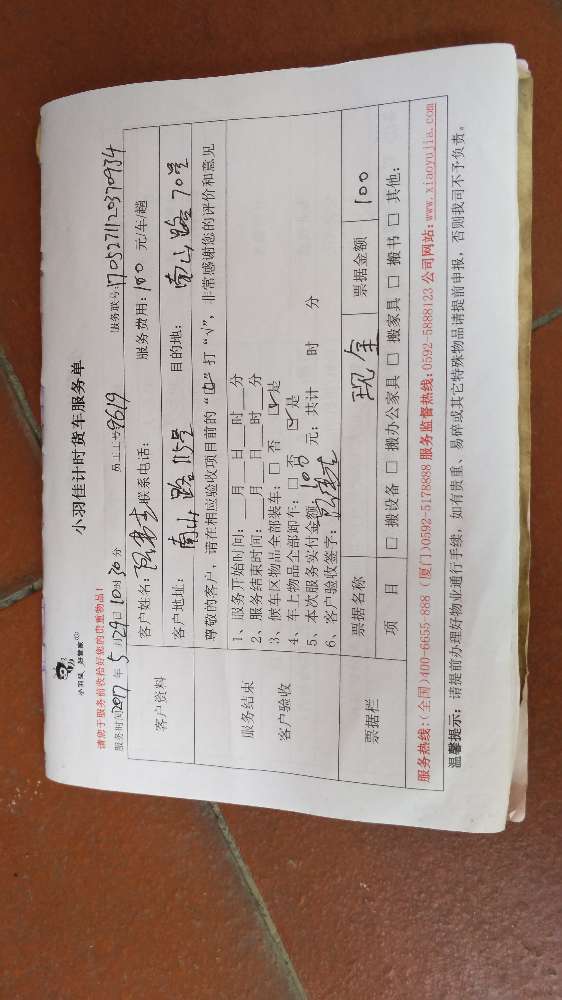 小羽佳计时货车服务单
小羽佳 好管家
请您于服务前收拾好您的贵重物品!
服务时间2017年5月29日10时30分 员工工号9619 服务联号:170527112370934
客户资料
客户姓名: 联系电话: 服务费用:100元/车/趟
客户地址:南山路115号 目的地:南山路70号
尊敬的客户,请在相应验收项目前的“□”打“√”,非常感谢您的评价和意见
服务结束
客户验收
1、服务开始时间:____月____日____时____分
2、服务结束时间:____月____日____时____分
3、候车区物品全部装车:□ 否 ☑是
4、车上物品全部卸车:□ 否 ☑是
5、本次服务实付金额100元;共计 时 分
6、客户验收签字:
票据栏
票据名称 现金 票据金额 100
项 目 □ 搬设备 □ 搬办公家具 □ 搬家具 □ 搬书 □ 其他:
服务热线:(全国)400-6655-888 (厦门)0592-5178888 服务监督热线:0592-5888123 公司网站:www.xiaoyujia.com
温馨提示:请提前办理好物业通行手续,如有贵重、易碎或其它特殊物品请提前申报,否则我司不予负责。